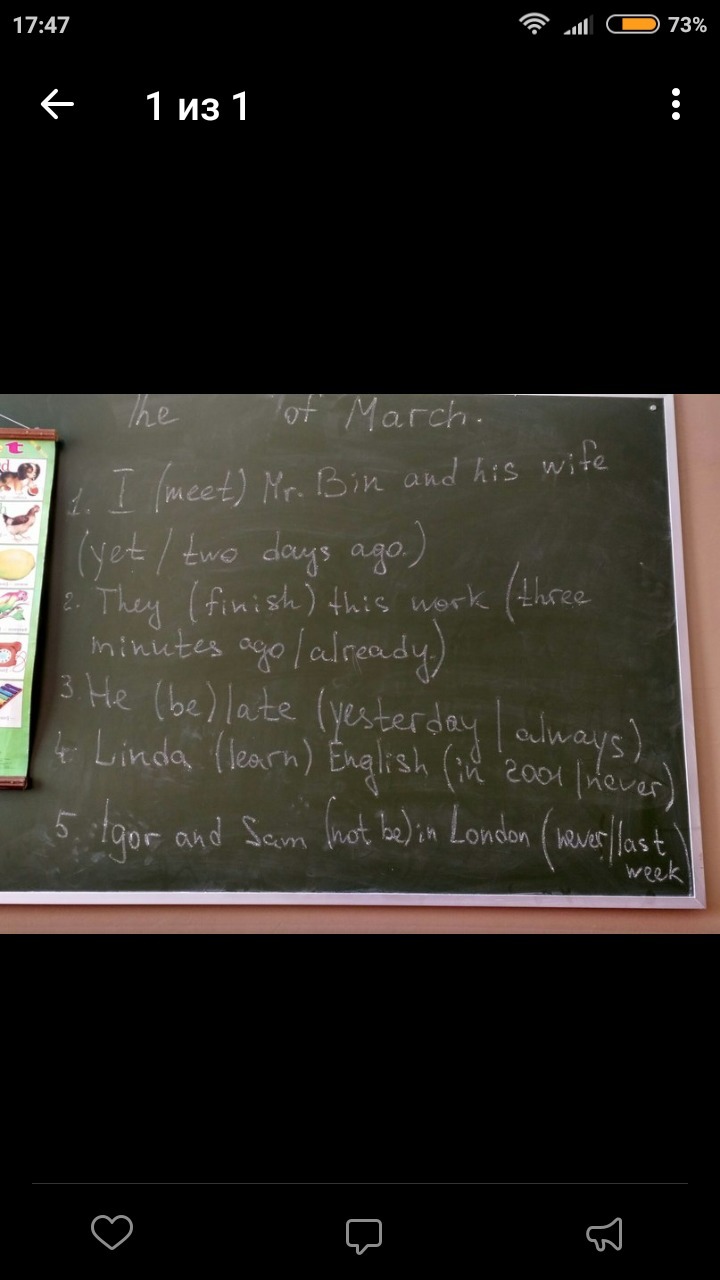 17:47
73%
1 из 1
The of March.
1. I (meet) Mr. Bin and his wife
(yet / two days ago.)
2. They (finish) this work (three
minutes ago / already.)
3. He (be) late (yesterday / always)
4. Linda (learn) English (in 2001 / never)
5. Igor and Sam (not be) in London (never / last
week